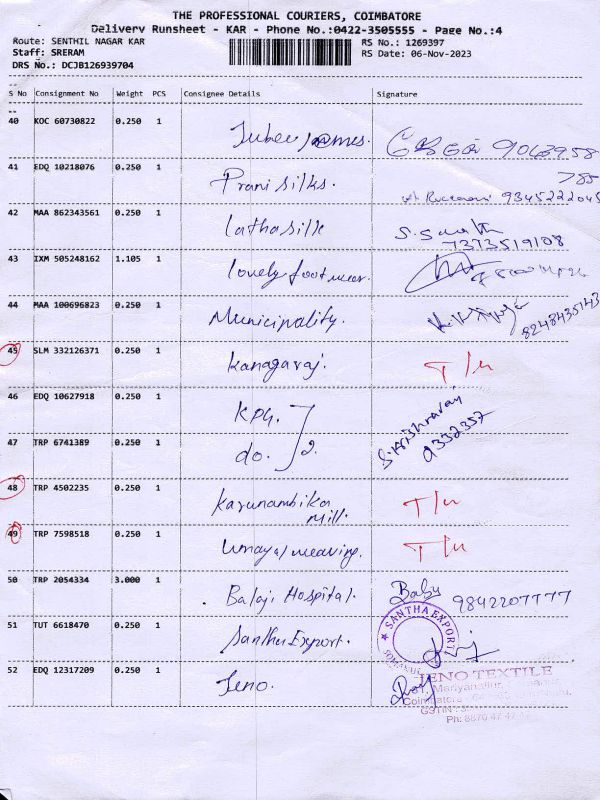 THE PROFESSIONAL COURIERS, COIMBATORE
Delivery Runsheet - KAR - Phone No.:0422-3505555 - Page No.:4
Route: SENTHIL NAGAR KAR RS No.: 1269397
Staff: SRERAM RS Date: 06-Nov-2023
DRS No.: DCJB126939704
S No Consignment No Weight PCS Consignee Details Signature
40 KOC 60730822 0.250 1
41 EDQ 10218076 0.250 1 Prani Silks.
9345222045
42 MAA 862343561 0.250 1 Lathasilk
7373519108
43 IXM 505248162 1.105 1 lovely footwear.
44 MAA 100696823 0.250 1 Municipality.
8248435143
45 SLM 332126371 0.250 1 Kanagaraj.
46 EDQ 10627918 0.250 1 KPG.
47 TRP 6741389 0.250 1 do. 2. S. Krishnaraj
9332357
48 TRP 4502235 0.250 1 Karunambika
Mill.
49 TRP 7598518 0.250 1 Umayal weaving.
50 TRP 2054334 3.000 1 Balaji Hospital. Baby
9842207777
51 TUT 6618470 0.250 1 Santha Export. SANTHA EXPORT
52 EDQ 12317209 0.250 1 Jeno. JENO TEXTILE
Coimbatore
GSTIN
Ph: 8870 47 47